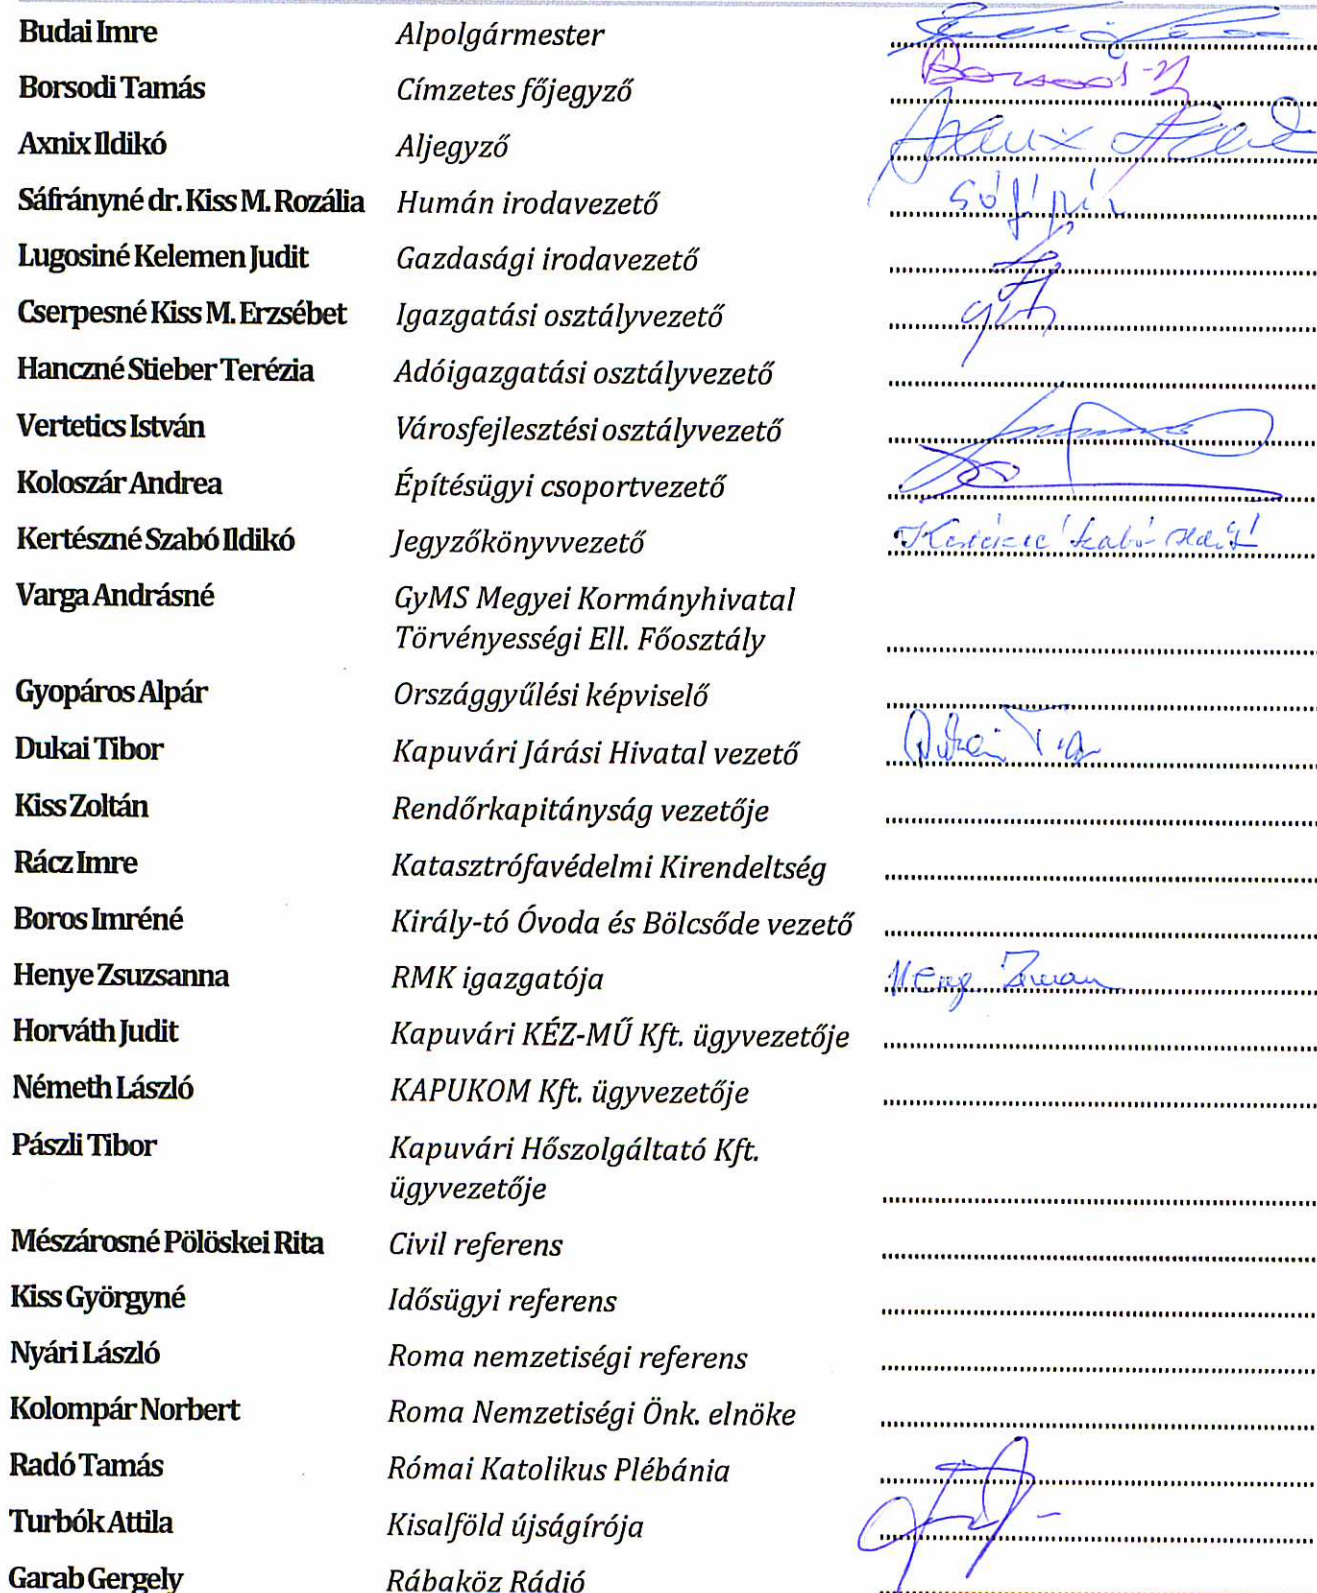 Budai Imre Alpolgármester
Borsodi Tamás Címzetes főjegyző Borsodi T
Axnix Ildikó Aljegyző Axnix Ildikó
Sáfrányné dr. Kiss M. Rozália Humán irodavezető
Lugosiné Kelemen Judit Gazdasági irodavezető
Cserpesné Kiss M. Erzsébet Igazgatási osztályvezető
Hanczné Stieber Terézia Adóigazgatási osztályvezető
Vertetics István Városfejlesztési osztályvezető
Koloszár Andrea Építésügyi csoportvezető
Kertészné Szabó Ildikó Jegyzőkönyvvezető Kertészné Szabó Ildikó
Varga Andrásné GyMS Megyei Kormányhivatal
Törvényességi Ell. Főosztály
Gyopáros Alpár Országgyűlési képviselő
Dukai Tibor Kapuvári Járási Hivatal vezető Dukai Tibor
Kiss Zoltán Rendőrkapitányság vezetője
Rácz Imre Katasztrófavédelmi Kirendeltség
Boros Imréné Király-tó Óvoda és Bölcsőde vezető
Henye Zsuzsanna RMK igazgatója
Horváth Judit Kapuvári KÉZ-MŰ Kft. ügyvezetője
Németh László KAPUKOM Kft. ügyvezetője
Pászli Tibor Kapuvári Hőszolgáltató Kft.
ügyvezetője
Mészárosné Pölöskei Rita Civil referens
Kiss Györgyné Idősügyi referens
Nyári László Roma nemzetiségi referens
Kolompár Norbert Roma Nemzetiségi Önk. elnöke
Radó Tamás Római Katolikus Plébánia
Turbók Attila Kisalföld újságírója
Garab Gergely Rábaköz Rádió